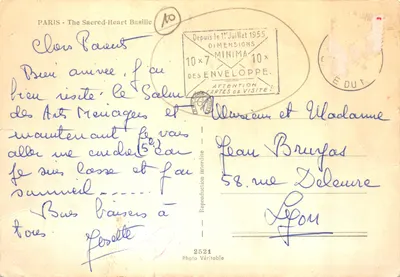 PARIS - The Sacred-Heart Basilic
10
Depuis le 1er Juillet 1955
DIMENSIONS
MINIMA
10 x 7
10 x
DES ENVELOPPE
ATTENTION
CARTES de VISITE!
E DU 1
Chers Parents
Bien arrivée, j'ai
bien visité le Salon
des Arts Ménagers et
maintenant je vais
aller me coucher car
je suis lasse et j'ai
sommeil ......
Bons baisers à
tous.
Josette
Monsieur et Madame
Jean
58. rue
Lyon
Reproduction interdite
2521
Photo Véritable